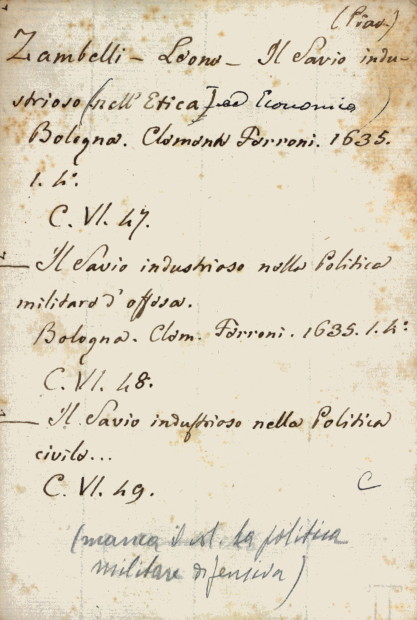 (Piac.)
Zambelli - Leone - Il Savio indu-
strioso (nell'Etica] ed Economica)
Bologna. Clemente Ferroni. 1635.
1. 4°.
C. VI. 47.
— Il Savio industrioso nella Politica
militare d'offesa.
Bologna. Clem. Ferroni. 1635. 1. 4°.
C. VI. 48.
— Il Savio industrioso nella Politica
civile...
C. VI. 49.
C
(manca il vol. La politica
militare difensiva)